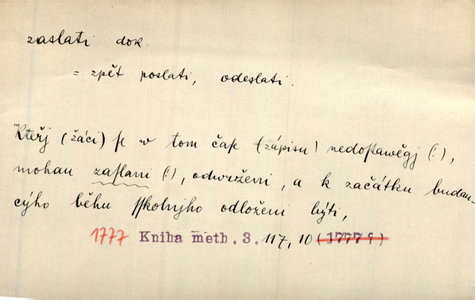 zaslati dok.
= zpět poslati, odeslati.
Kteřj (žáci) ſe w tom čaſe (zápisu) nedoſtawěgj (:),
mohau zaſlani (:), odwrženi, a k začátku budau-
cýho běhu ſſkolnjho odloženi býti,
1777 Kniha meth. 3. 117, 10 (1777 ?)